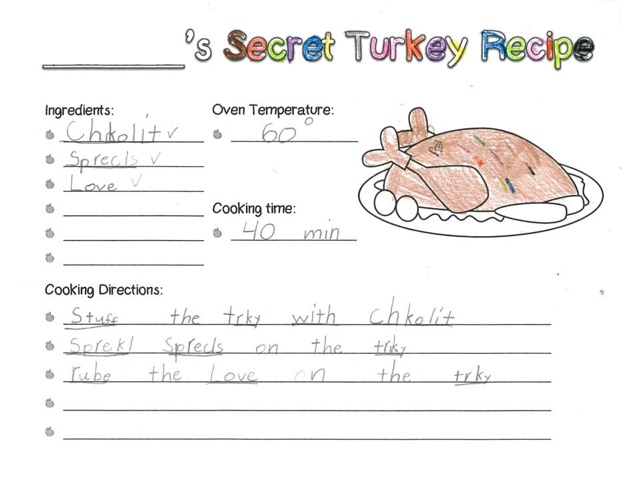 ________'s Secret Turkey Recipe
Ingredients:
Chkolit ✓
Sprecls ✓
Love ✓
Oven Temperature:
60°
Cooking time:
40 min
Cooking Directions:
Stuff the trky with chkolit
Sprekl Sprecls on the trky
rube the Love on the trky